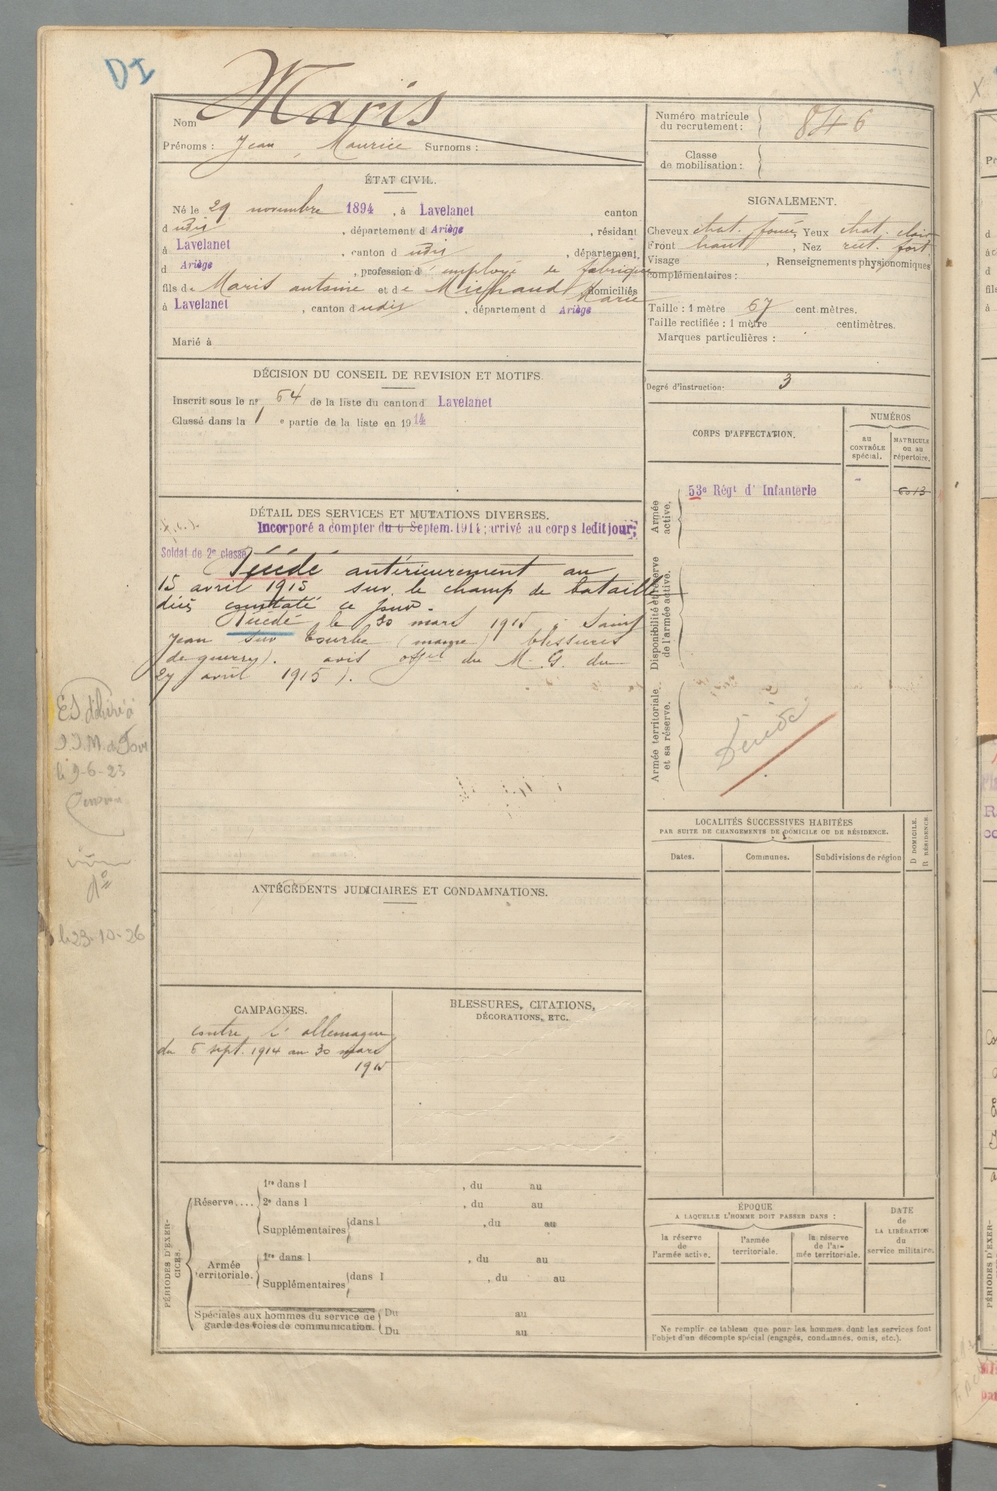 DI
Nom Maris
Prénoms : Jean, Maurice Surnoms :
Numéro matricule du recrutement : 846
Classe de mobilisation :
ÉTAT CIVIL.
Né le 29 novembre 1894, à Lavelanet canton
d udit, département d Ariège, résidant
à Lavelanet, canton d udit, département
d Ariège, profession d'employé de fabrique
fils de Maris antoine et de Michaud Marie domiciliés
à Lavelanet, canton d udit, département d Ariège
Marié à
SIGNALEMENT.
Cheveux chat. foncé, Yeux chat. clair
Front haut, Nez rect. fort
Visage , Renseignements physionomiques
complémentaires :
Taille : 1 mètre 67 centimètres.
Taille rectifiée : 1 mètre centimètres.
Marques particulières :
Degré d'instruction 3
DÉCISION DU CONSEIL DE REVISION ET MOTIFS.
Inscrit sous le n° 64 de la liste du canton d Lavelanet
Classé dans la 1 e partie de la liste en 1914
CORPS D'AFFECTATION.
NUMÉROS
au CONTRÔLE spécial.
MATRICULE ou au répertoire.
Armée active.
53e Régt d'Infanterie
6013
Disponibilité et réserve de l'armée active.
Armée territoriale et sa réserve.
Décédé
DÉTAIL DES SERVICES ET MUTATIONS DIVERSES.
Incorporé à compter du 6 Septem. 1914; arrivé au corps ledit jour;
Soldat de 2e classe
Décédé antérieurement au
15 avril 1915 sur le champ de bataille
décès constaté ce jour.
Décédé le 30 mars 1915 à Saint
Jean sur Tourbe (marne) blessures
de guerre). avis offel du M. G. du
27 avril 1915).
le 9-6-23
le 23-10-26
LOCALITÉS SUCCESSIVES HABITÉES
PAR SUITE DE CHANGEMENTS DE DOMICILE OU DE RÉSIDENCE.
Dates.
Communes.
Subdivisions de région
D DOMICILE.
R RÉSIDENCE.
ANTÉCÉDENTS JUDICIAIRES ET CONDAMNATIONS.
CAMPAGNES.
contre l'allemagne
du 6 sept. 1914 au 30 mars
1915
BLESSURES, CITATIONS,
DÉCORATIONS, ETC.
PÉRIODES D'EXERCICES.
Réserve....
1re dans l , du au
2e dans l , du au
Supplémentaires dans l , du au
Armée territoriale.
1re dans l , du au
Supplémentaires dans l , du au
Spéciales aux hommes du service de
garde des voies de communication.
Du au
Du au
ÉPOQUE
A LAQUELLE L'HOMME DOIT PASSER DANS :
la réserve de l'armée active.
l'armée territoriale.
la réserve de l'armée territoriale.
DATE
de
LA LIBÉRATION
du
service militaire.
Ne remplir ce tableau que pour les hommes dont les services font
l'objet d'un décompte spécial (engagés, condamnés, omis, etc.).